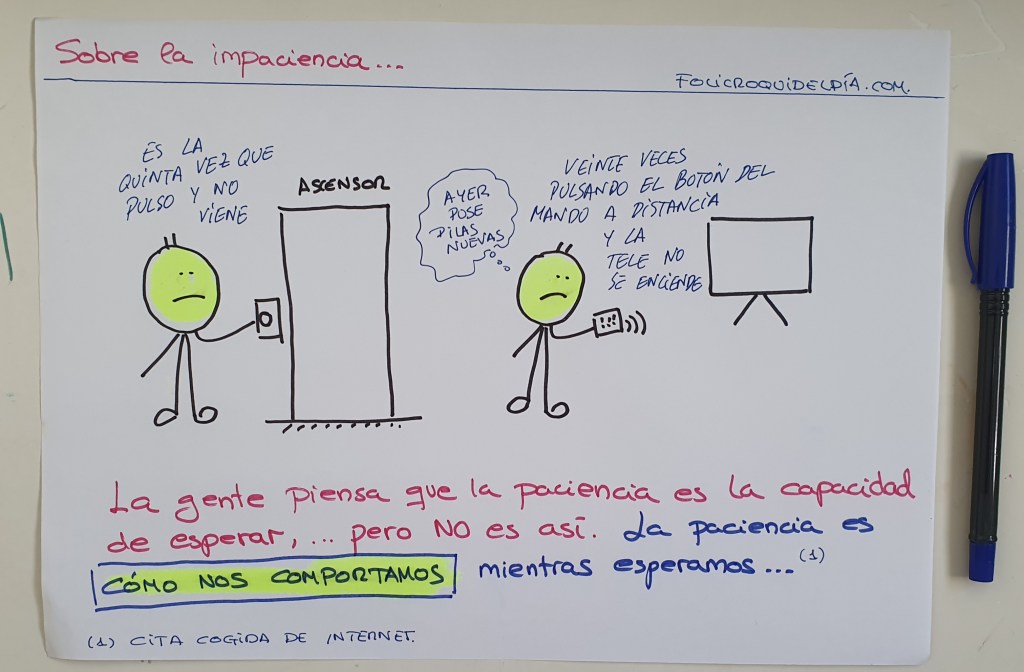 Sobre la impaciencia...
FOLICROQUIDELDÍA.COM.
ES LA
QUINTA VEZ QUE
PULSO Y NO
VIENE
ASCENSOR
AYER
POSE
PILAS
NUEVAS
VEINTE VECES
PULSANDO EL BOTÓN DEL
MANDO A DISTANCIA
Y LA
TELE NO
SE ENCIENDE
La gente piensa que la paciencia es la capacidad
de esperar, ... pero NO es así. La paciencia es
CÓMO NOS COMPORTAMOS mientras esperamos... (1)
(1) CITA COGIDA DE INTERNET.